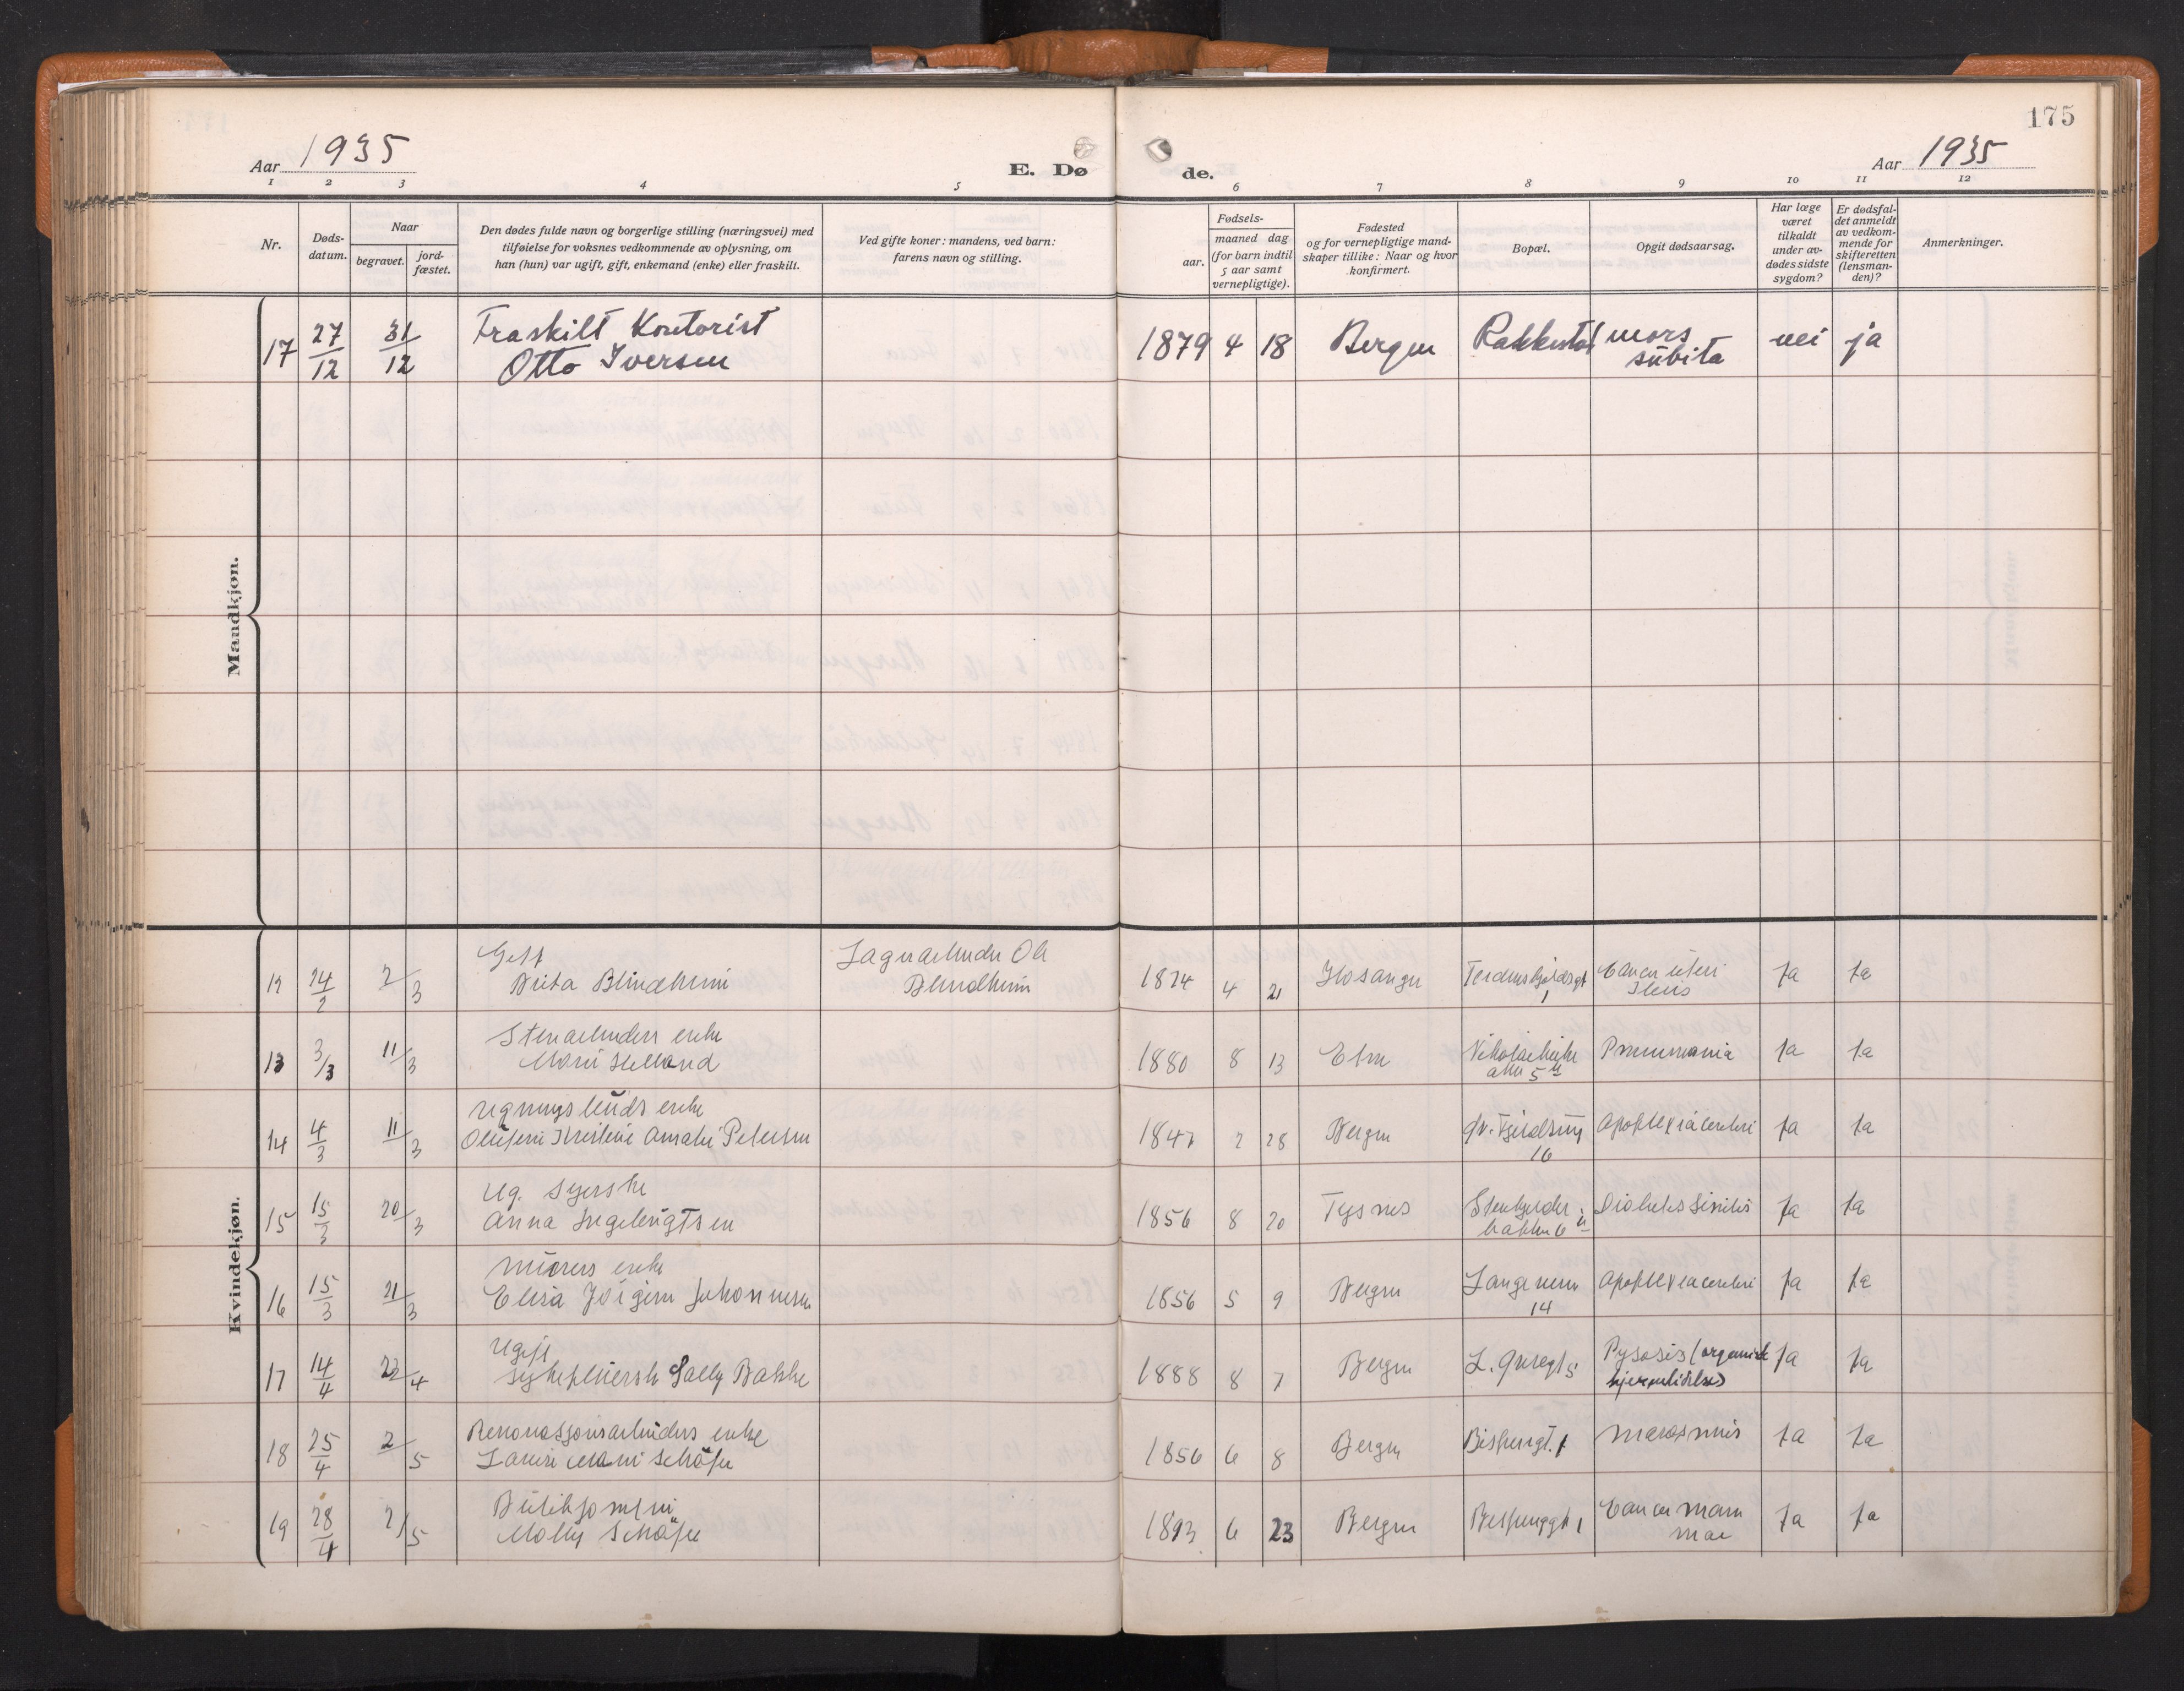 175
Aar 1935
E. Dø
de.
Aar 1935
1 2 3 4 5 6 7 8 9 10 11 12
Nr.
Døds-
datum.
Naar
begravet.
jord-
fæstet.
Den dødes fulde navn og borgerlige stilling (næringsvei) med
tilføielse for voksnes vedkommende av oplysning, om
han (hun) var ugift, gift, enkemand (enke) eller fraskilt.
Ved gifte koner: mandens, ved barn:
farens navn og stilling.
Fødsels-
aar.
maaned dag
(for barn indtil
5 aar samt
vernepligtige).
Fødested
og for vernepligtige mand-
skaper tillike: Naar og hvor
konfirmert.
Bopæl.
Opgit dødsaarsag.
Har læge
været
tilkaldt
under av-
dødes sidste
sygdom?
Er dødsfal-
det anmeldt
av vedkom-
mende for
skifteretten
(lensman-
den)?
Anmerkninger.
Mandkjøn.
Fraskilt Kontorist mors
17 27/12 31/12 Otto Iversen 1879 4 18 Bergen Rakkestad subita nei ja
Kvindekjøn.
Gift Lagerarbeider Ole
12 24/2 2/3 Brita Blindheim Blindheim 1874 4 21 Hosanger Tordenskjoldsgt 1 Cancer uteri Ileus Ja Ja
Stenarbeiders enke
13 3/3 11/3 Marie Helland 1880 8 13 Nikolaikirke allm 5 Pneumonia Ja Ja
enke
14 4/3 11/3 Olufine Kristine Amalie Petersen 1847 2 28 Bergen 16 Apoplexia cerebri Ja Ja
Ug. syerske
15 15/3 20/3 Anna Ingebrigtsen 1856 8 20 Tysnes Stenkjelder bakken 6 Diabetes senilis Ja Ja
Murers enke
16 15/3 21/3 Elisa Jørgine Johannesen 1856 5 9 Bergen 14 Apoplexia cerebri Ja Ja
Ugift
17 14/4 22/4 sykepleierske Sally Bakke 1888 8 7 Bergen L. Øvregt 5 (organisk hjernelidelse) Ja Ja
Renovasjonsarbeiders enke
18 25/4 2/5 Marie Schäfer 1856 6 8 Bergen Bispengt. 1 Marasmus Ja Ja
Butikjomfru
19 28/4 2/5 Molly Schäfer 1893 6 23 Bergen Bispenggt 1 Cancer mam mae Ja Ja